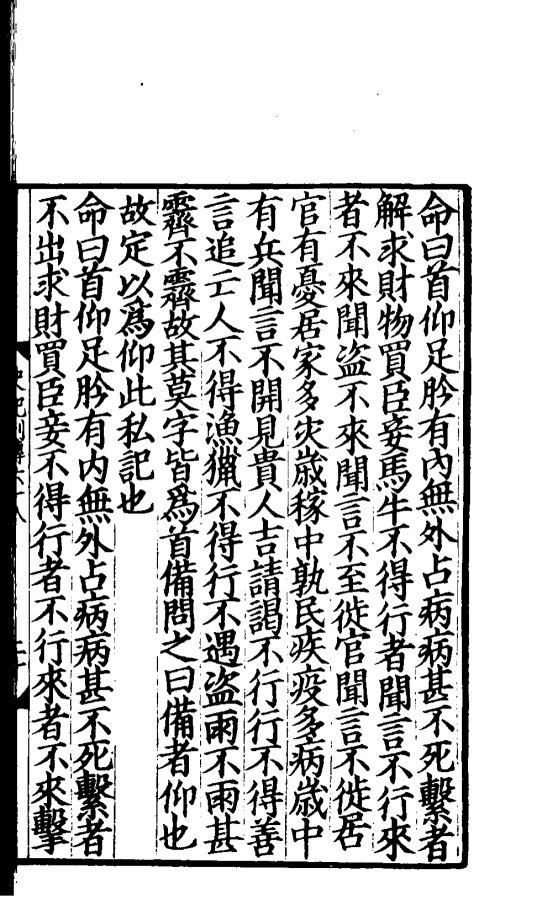 命曰首仰足肣有內無外占病病甚不死繫者
解求財物買臣妾馬牛不得行者聞言不行來
者不來聞盜不來聞言不至徙官聞言不徙居
官有憂居家多灾歲稼中孰民疾疫多病歲中
有兵聞言不開見貴人吉請謁不行行不得善
言追亡人不得漁獵不得行不遇盜雨不雨甚
霽不霽故其莫字皆爲首備問之曰備者仰也
故定以爲仰此私記也
命曰首仰足肣有内無外占病病甚不死繫者
不出求財買臣妾不得行者不行來者不來擊